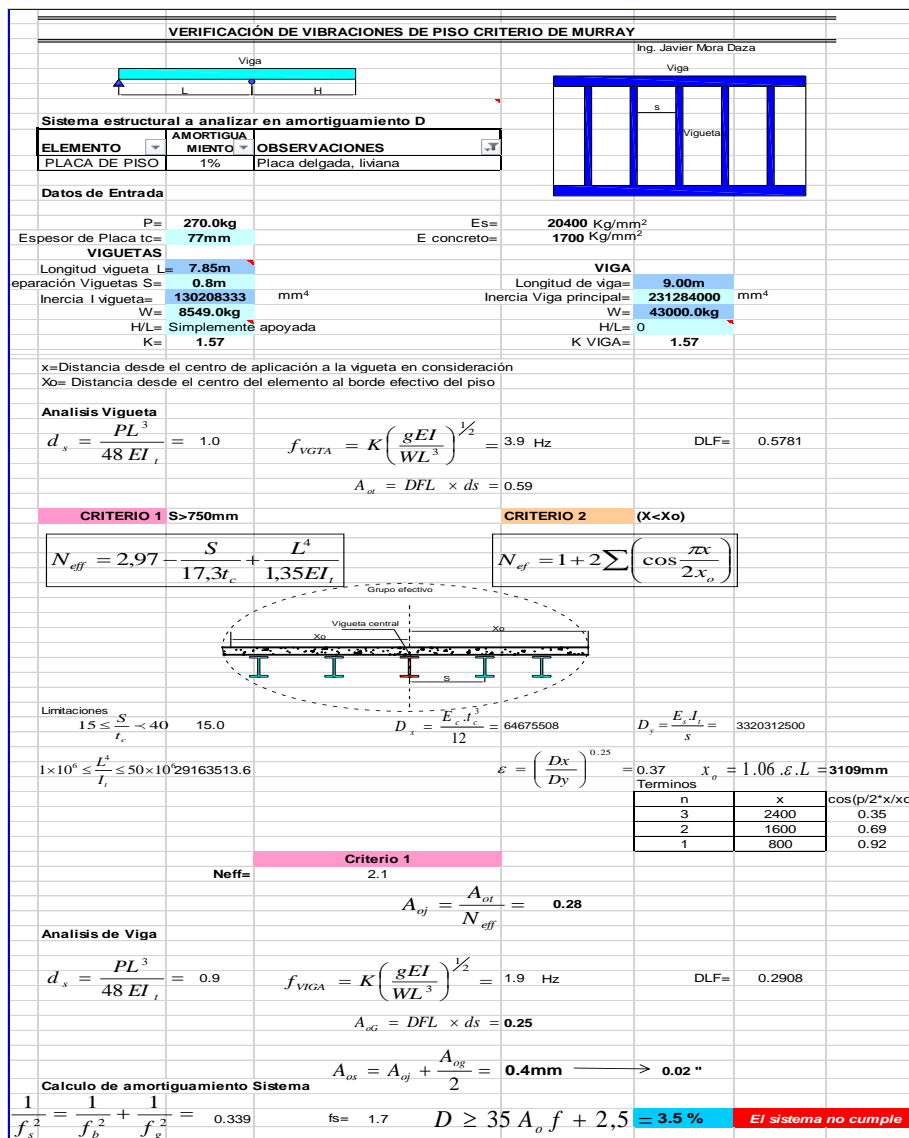 VERIFICACIÓN DE VIBRACIONES DE PISO CRITERIO DE MURRAY
Ing. Javier Mora Daza
Viga
L H
Viga
S
Vigueta
Sistema estructural a analizar en amortiguamiento D
ELEMENTO AMORTIGUA MIENTO OBSERVACIONES
PLACA DE PISO 1% Placa delgada, liviana
Datos de Entrada
P= 270.0kg Es= 20400 Kg/mm²
Espesor de Placa tc= 77mm E concreto= 1700 Kg/mm²
VIGUETAS
Longitud vigueta L= 7.85m VIGA
eparación Viguetas S= 0.8m Longitud de viga= 9.00m
Inercia I vigueta= 130208333 mm⁴ Inercia Viga principal= 231284000 mm⁴
W= 8549.0kg W= 43000.0kg
H/L= Simplemente apoyada H/L= 0
K= 1.57 K VIGA= 1.57
x=Distancia desde el centro de aplicación a la vigueta en consideración
Xo= Distancia desde el centro del elemento al borde efectivo del piso
Analisis Vigueta
d_s = PL³ / 48 EI_t = 1.0 f_VGTA = K (gEI / WL³)^½ = 3.9 Hz DLF= 0.5781
A_ot = DFL × ds = 0.59
CRITERIO 1 S>750mm CRITERIO 2 (X<Xo)
N_eff = 2,97 - S / 17,3t_c + L⁴ / 1,35EI_t N_ef = 1 + 2∑(cos πx / 2x_o)
Grupo efectivo
Vigueta central
Xo Xo
S
Limitaciones
15 ≤ S / t_c ≺ 40 15.0 D_x = E_c.t_c³ / 12 = 64675508 D_y = E_s.I_t / s = 3320312500
1×10⁶ ≤ L⁴ / I_t ≤ 50×10⁶ 29163513.6 ε = (Dx / Dy)^0.25 = 0.37 x_o = 1.06 .ε.L = 3109mm
Terminos
n x cos(p/2*x/xo
3 2400 0.35
2 1600 0.69
1 800 0.92
Criterio 1
Neff= 2.1
A_oj = A_ot / N_eff = 0.28
Analisis de Viga
d_s = PL³ / 48 EI_t = 0.9 f_VIGA = K (gEI / WL³)^½ = 1.9 Hz DLF= 0.2908
A_oG = DFL × ds = 0.25
A_os = A_oj + A_og / 2 = 0.4mm → 0.02 "
Calculo de amortiguamiento Sistema
1 / f_s² = 1 / f_b² + 1 / f_g² = 0.339 fs= 1.7 D ≥ 35 A_o f + 2,5 = 3.5 % El sistema no cumple